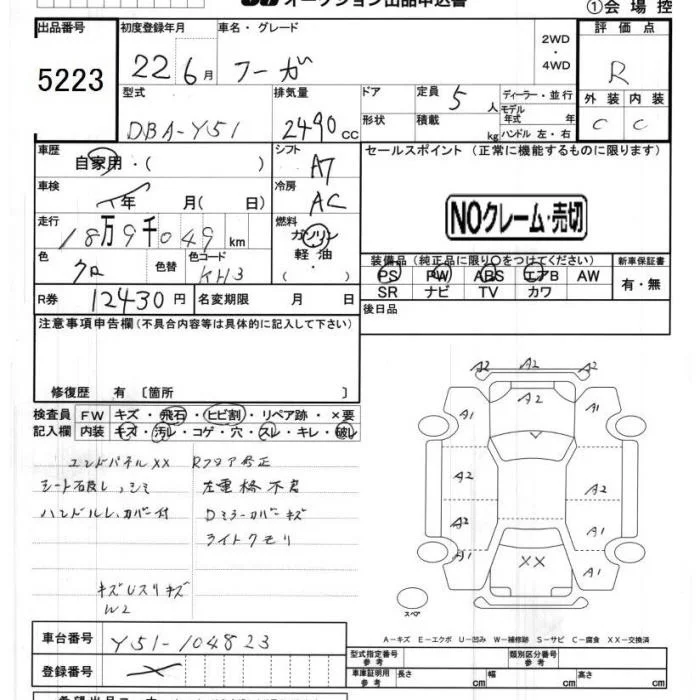 オークション出品申込書
①会 場 控
出品番号
5223
初度登録年月
22 6月
車名・グレード
フーガ
2WD
・
4WD
評 価 点
R
外 装 内 装
C C
型式
DBA-Y51
排気量
2490cc
ドア
形状
定員 5人
積載 kg
ディーラー・並行
モデル
年式 年
ハンドル 左・右
車歴
自家用・( )
シフト
A7
セールスポイント (正常に機能するものに限ります)
NOクレーム・売切
車検
年 月( 日)
冷房
AC
走行
18万9千049km
燃料
ガソリン
軽油・
( )
色
クロ
色替
色コード
KH3
装備品(純正品に限り○をつけてください)
PS PW ABS エアB AW
SR ナビ TV カワ
新車保証書
有・無
R券 12430円
名変期限 月 日
後日品
注意事項申告欄(不具合内容等は具体的に記入して下さい)
修復歴 有〔箇所 〕
検査員
記入欄
FW キズ・飛石・ヒビ割・リペア跡・×要
内装 キズ・汚レ・コゲ・穴・スレ・キレ・破レ
エンドパネルXX Rフロア修正
シミ
ハンドルレ、カバー付
Dミラーカバーキズ
ライトクモリ
W2
A2 A2 A2
A1 A2 A1
A2 A2
A2 A1
A1 XX A1
スペア
A-キズ E-エクボ U-凹み W-補修跡 S-サビ C-腐食 XX-交換済
車台番号 Y51-104823
登録番号
型式指定番号
参考
類別区分番号
参考
車庫証明用
参考
長さ cm 幅 cm 高さ cm